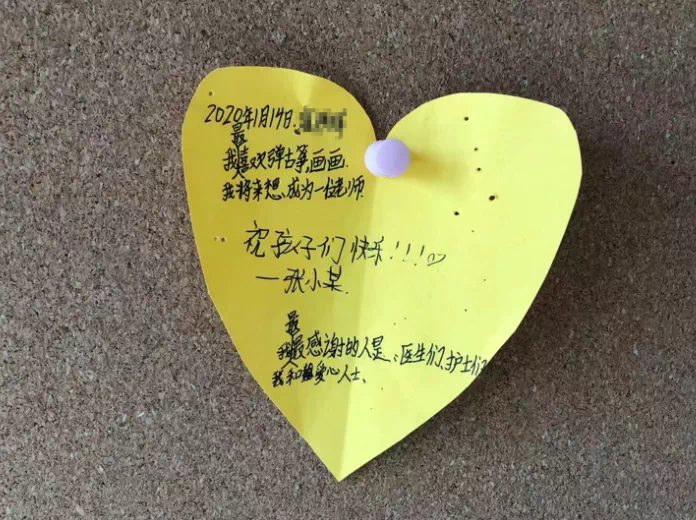 2020年1月14日.
最
我喜欢弹古筝,画画.
我将来想,成为一位老师
祝孩子们快乐!!!
—张小某.
最
我最感谢的人是、医生们,护士们
我和爱心人士、